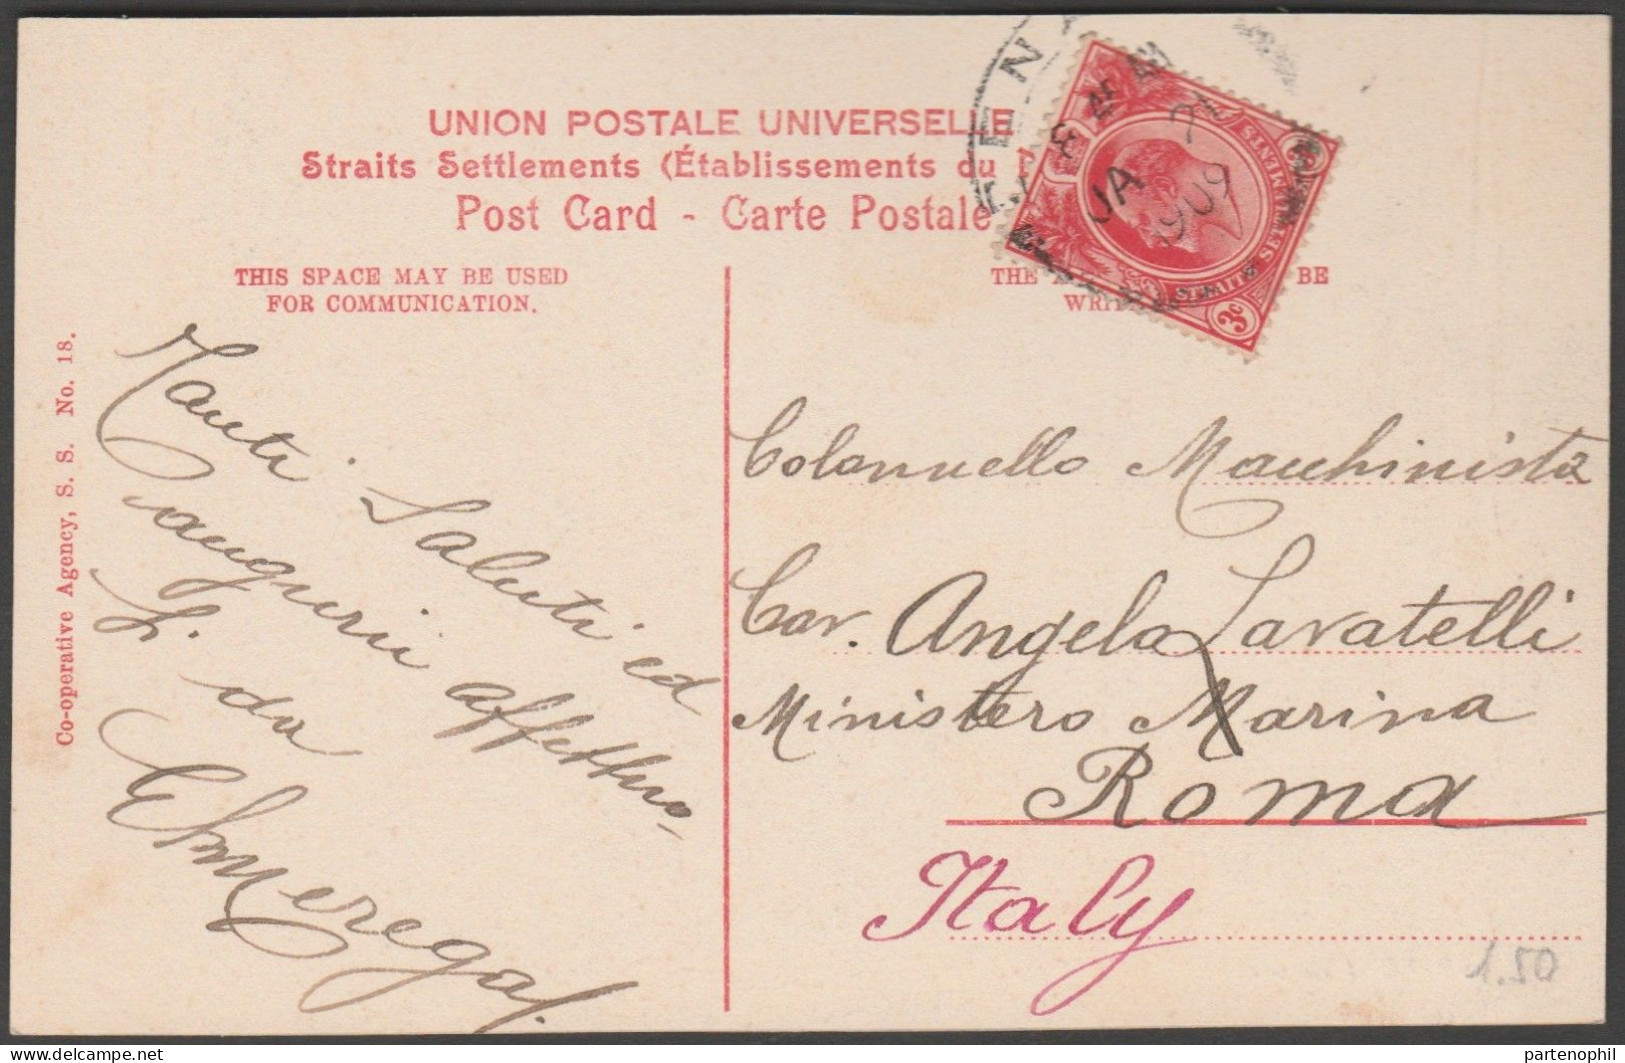 UNION POSTALE UNIVERSELLE
Straits Settlements (Établissements du
Post Card - Carte Postale
THIS SPACE MAY BE USED
FOR COMMUNICATION.
THE BE
WRI
PEN
JA
1909
STRAITS SETTLEMENTS
3c
Co-operative Agency, S. S. No. 18.
Tanti Saluti ed
auguri affettuo-
da
Colonnello Macchinista
Cav. Angelo Lavatelli
Ministero Marina
Roma
Italy
1.50
partenophil